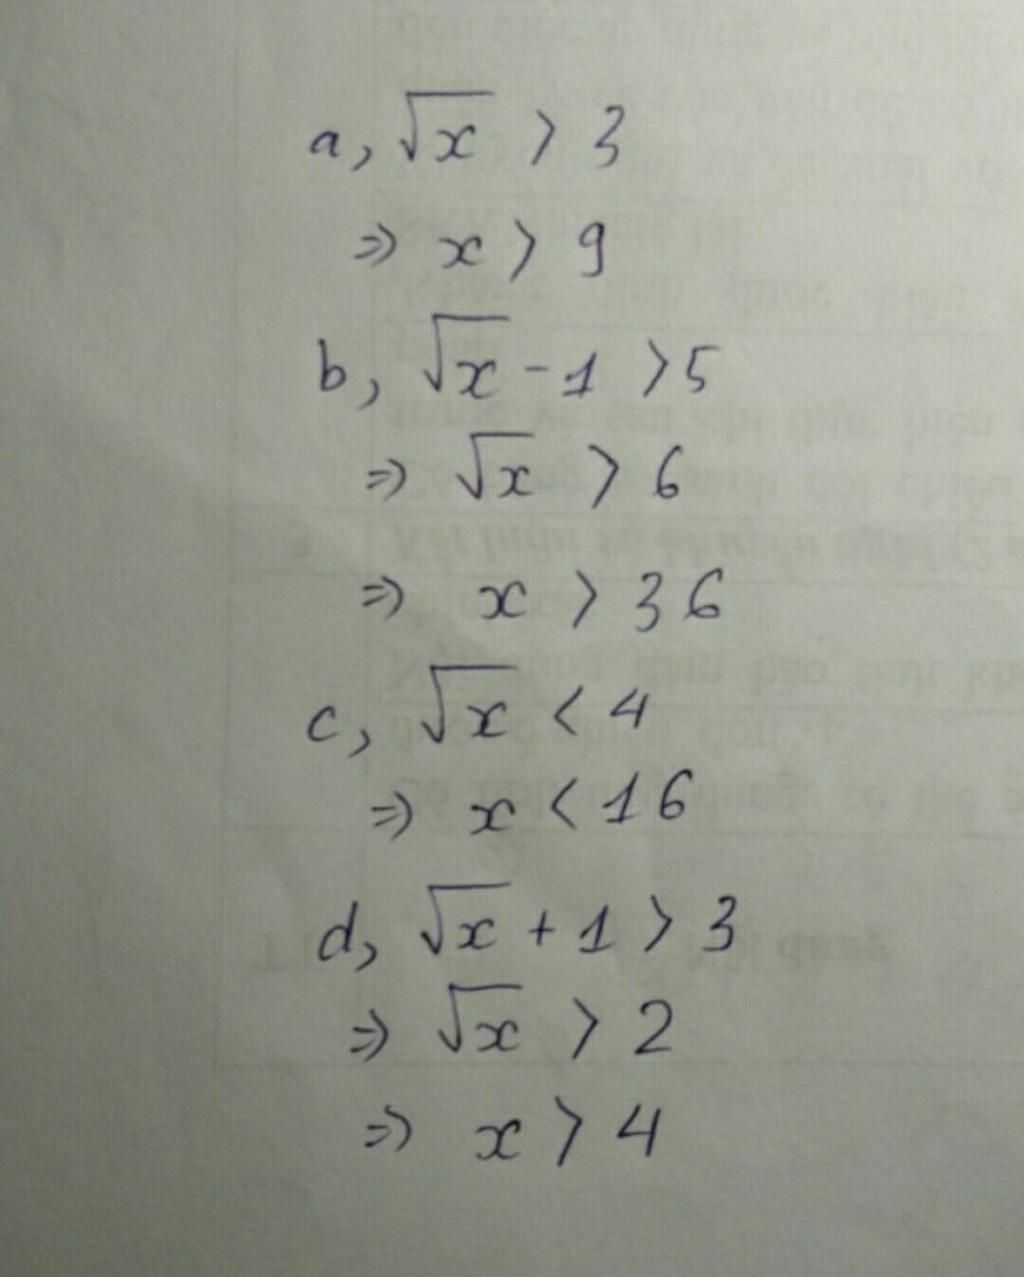 a, √x > 3
⇒ x > 9
b, √x - 1 > 5
⇒ √x > 6
⇒ x > 36
c, √x < 4
⇒ x < 16
d, √x + 1 > 3
⇒ √x > 2
⇒ x > 4